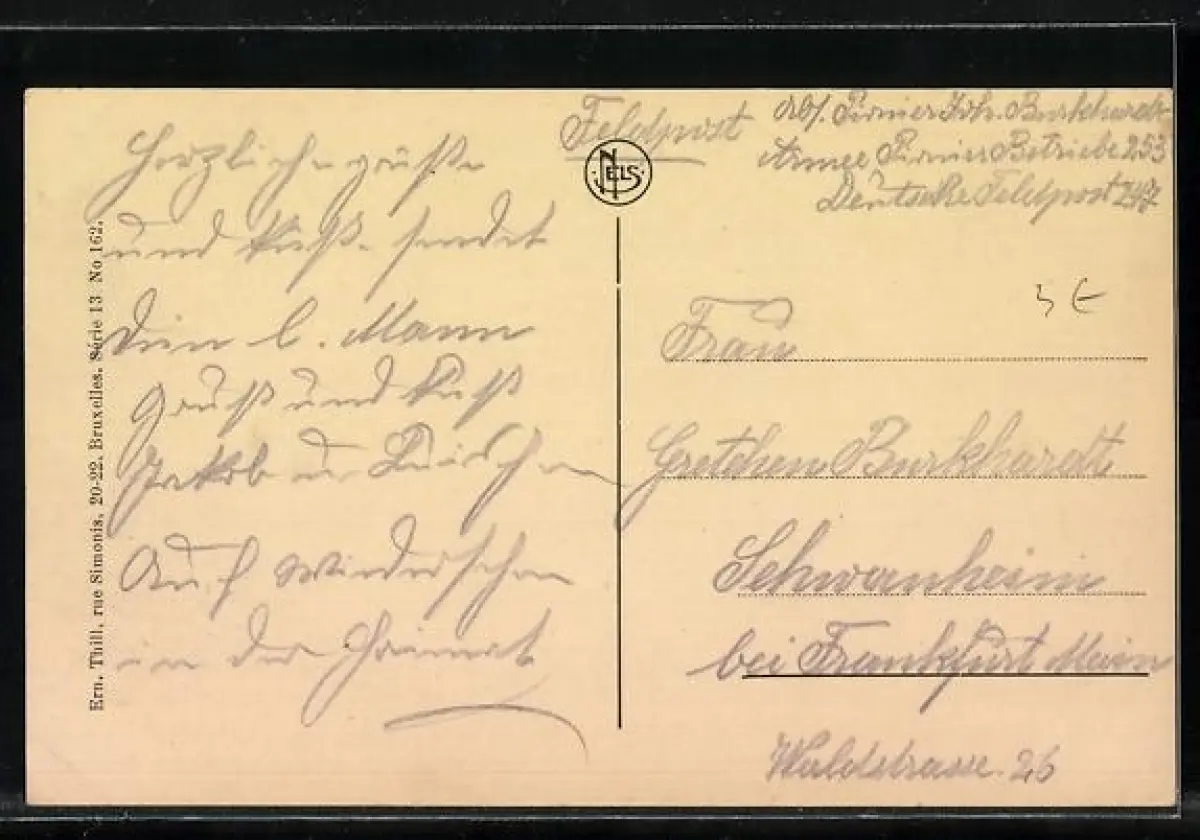 Feldpost
Abs. Pionier Joh. Burkhardt
Armee Pionier Betriebe 253
Deutsche Feldpost 247
NELS
Herzliche grüße
und Küße sendet
Dein l. Mann
Gruß und Kuß
Jakob u. Luischen
Auf Wiedersehen
in der Heimat
Ern. Thill, rue Simonis, 20-22, Bruxelles. Série 13 No 162.
3 €
Frau
Gretchen Burkhardt
Schwanheim
bei Frankfurt Main
Waldstrasse. 26